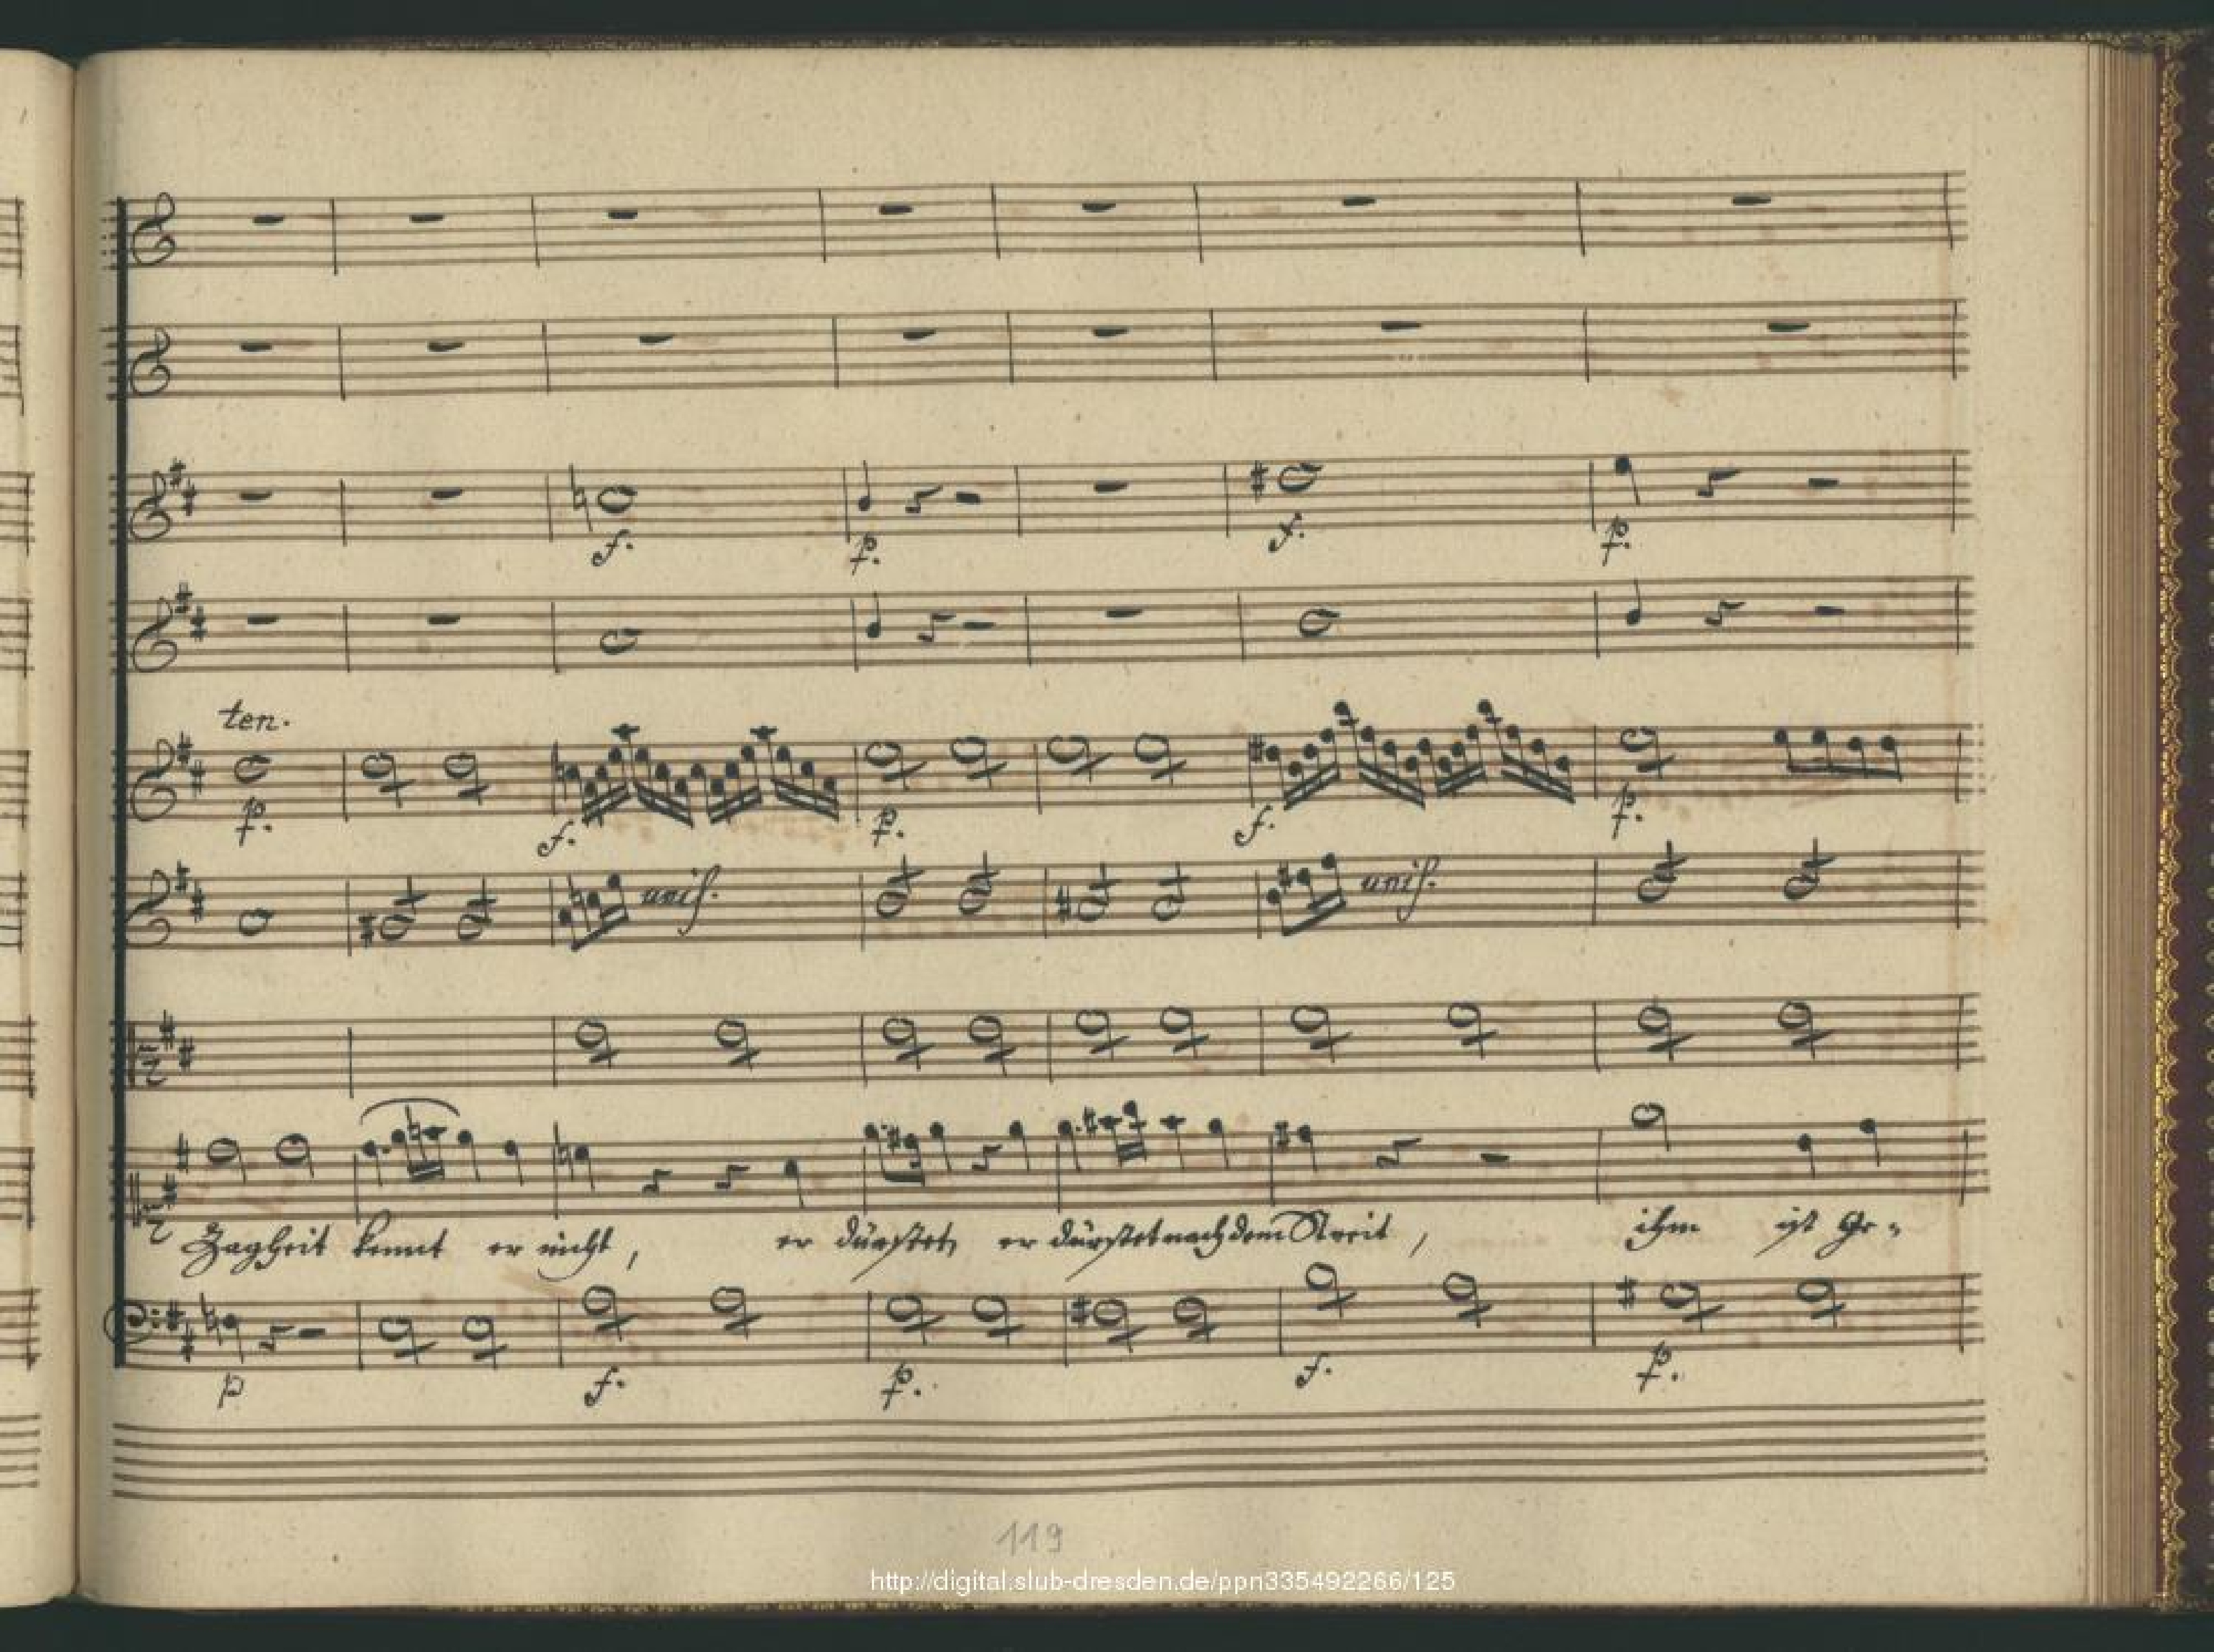 f. p. f. p.
ten.
p. f. p. f. p.
unis. unis.
Zagheit kennt er nicht, er dürstet, er dürstet nach dem Streit, ihm ist Ge-
p f. p. f. p.
119
http://digital.slub-dresden.de/ppn335492266/125